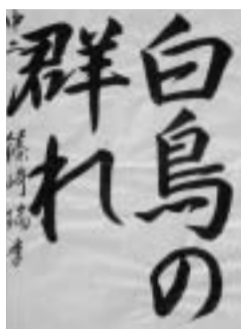 白鳥の
群れ
中二 篠崎瑞季